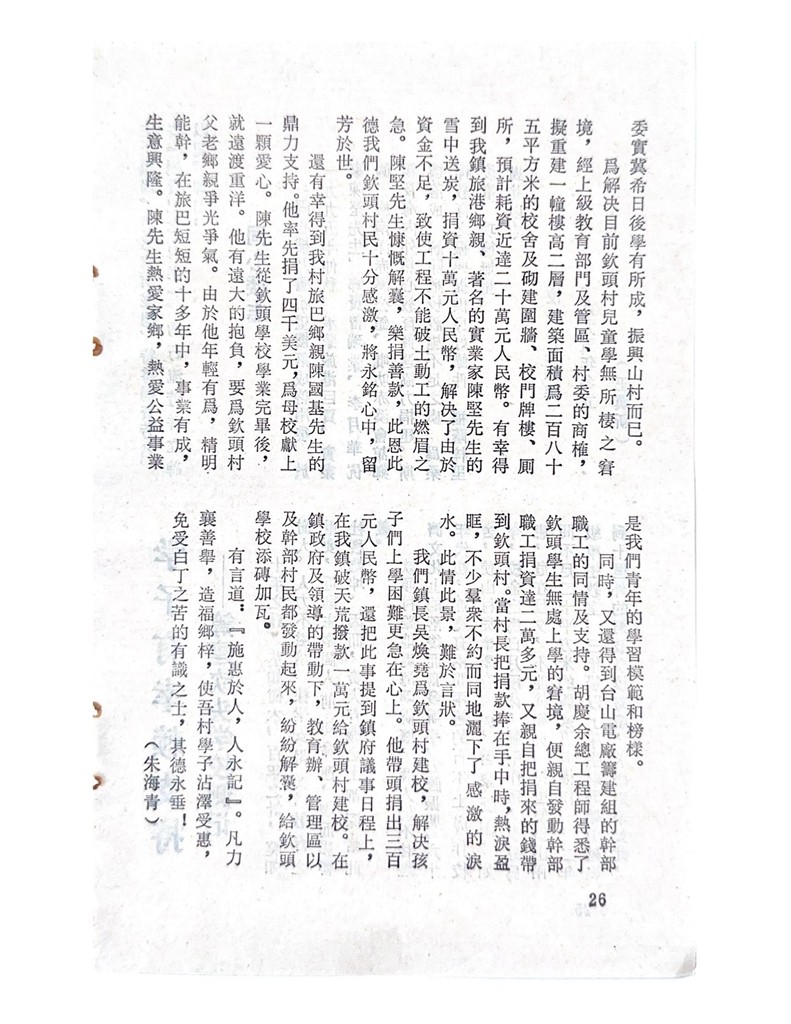 委實冀希日後學有所成，振興山村而已。
爲解決目前欽頭村兒童學無所棲之窘
境，經上級教育部門及管區、村委的商榷，
擬重建一幢樓高二層，建築面積爲二百八十
五平方米的校舍及砌建圍牆、校門牌樓、厠
所，預計耗資近達二十萬元人民幣。有幸得
到我鎮旅港鄉親、著名的實業家陳堅先生的
雪中送炭，捐資十萬元人民幣，解決了由於
資金不足，致使工程不能破土動工的燃眉之
急。陳堅先生慷慨解囊，樂捐善款，此恩此
德我們欽頭村民十分感激，將永銘心中，留
芳於世。
還有幸得到我村旅巴鄉親陳國基先生的
鼎力支持。他率先捐了四千美元，爲母校獻上
一顆愛心。陳先生從欽頭學校學業完畢後，
就遠渡重洋。他有遠大的抱負，要爲欽頭村
父老鄉親爭光爭氣。由於他年輕有爲，精明
能幹，在旅巴短短的十多年中，事業有成，
生意興隆。陳先生熱愛家鄉，熱愛公益事業
是我們青年的學習模範和榜樣。
同時，又還得到台山電廠籌建組的幹部
職工的同情及支持。胡慶余總工程師得悉了
欽頭學生無處上學的窘境，便親自發動幹部
職工捐資達二萬多元，又親自把捐來的錢帶
到欽頭村。當村長把捐款捧在手中時，熱淚盈
眶，不少羣衆不約而同地灑下了感激的淚
水。此情此景，難於言狀。
我們鎮長吳煥堯爲欽頭村建校，解決孩
子們上學困難更急在心上。他帶頭捐出三百
元人民幣，還把此事提到鎮府議事日程上，
在我鎮破天荒撥款一萬元給欽頭村建校。在
鎮政府及領導的帶動下，教育辦、管理區以
及幹部村民都發動起來，紛紛解囊，給欽頭
學校添磚加瓦。
有言道：『施惠於人，人永記』。凡力
襄善舉，造福鄉梓，使吾村學子沾澤受惠，
免受白丁之苦的有識之士，其德永垂！
（朱海青）
26